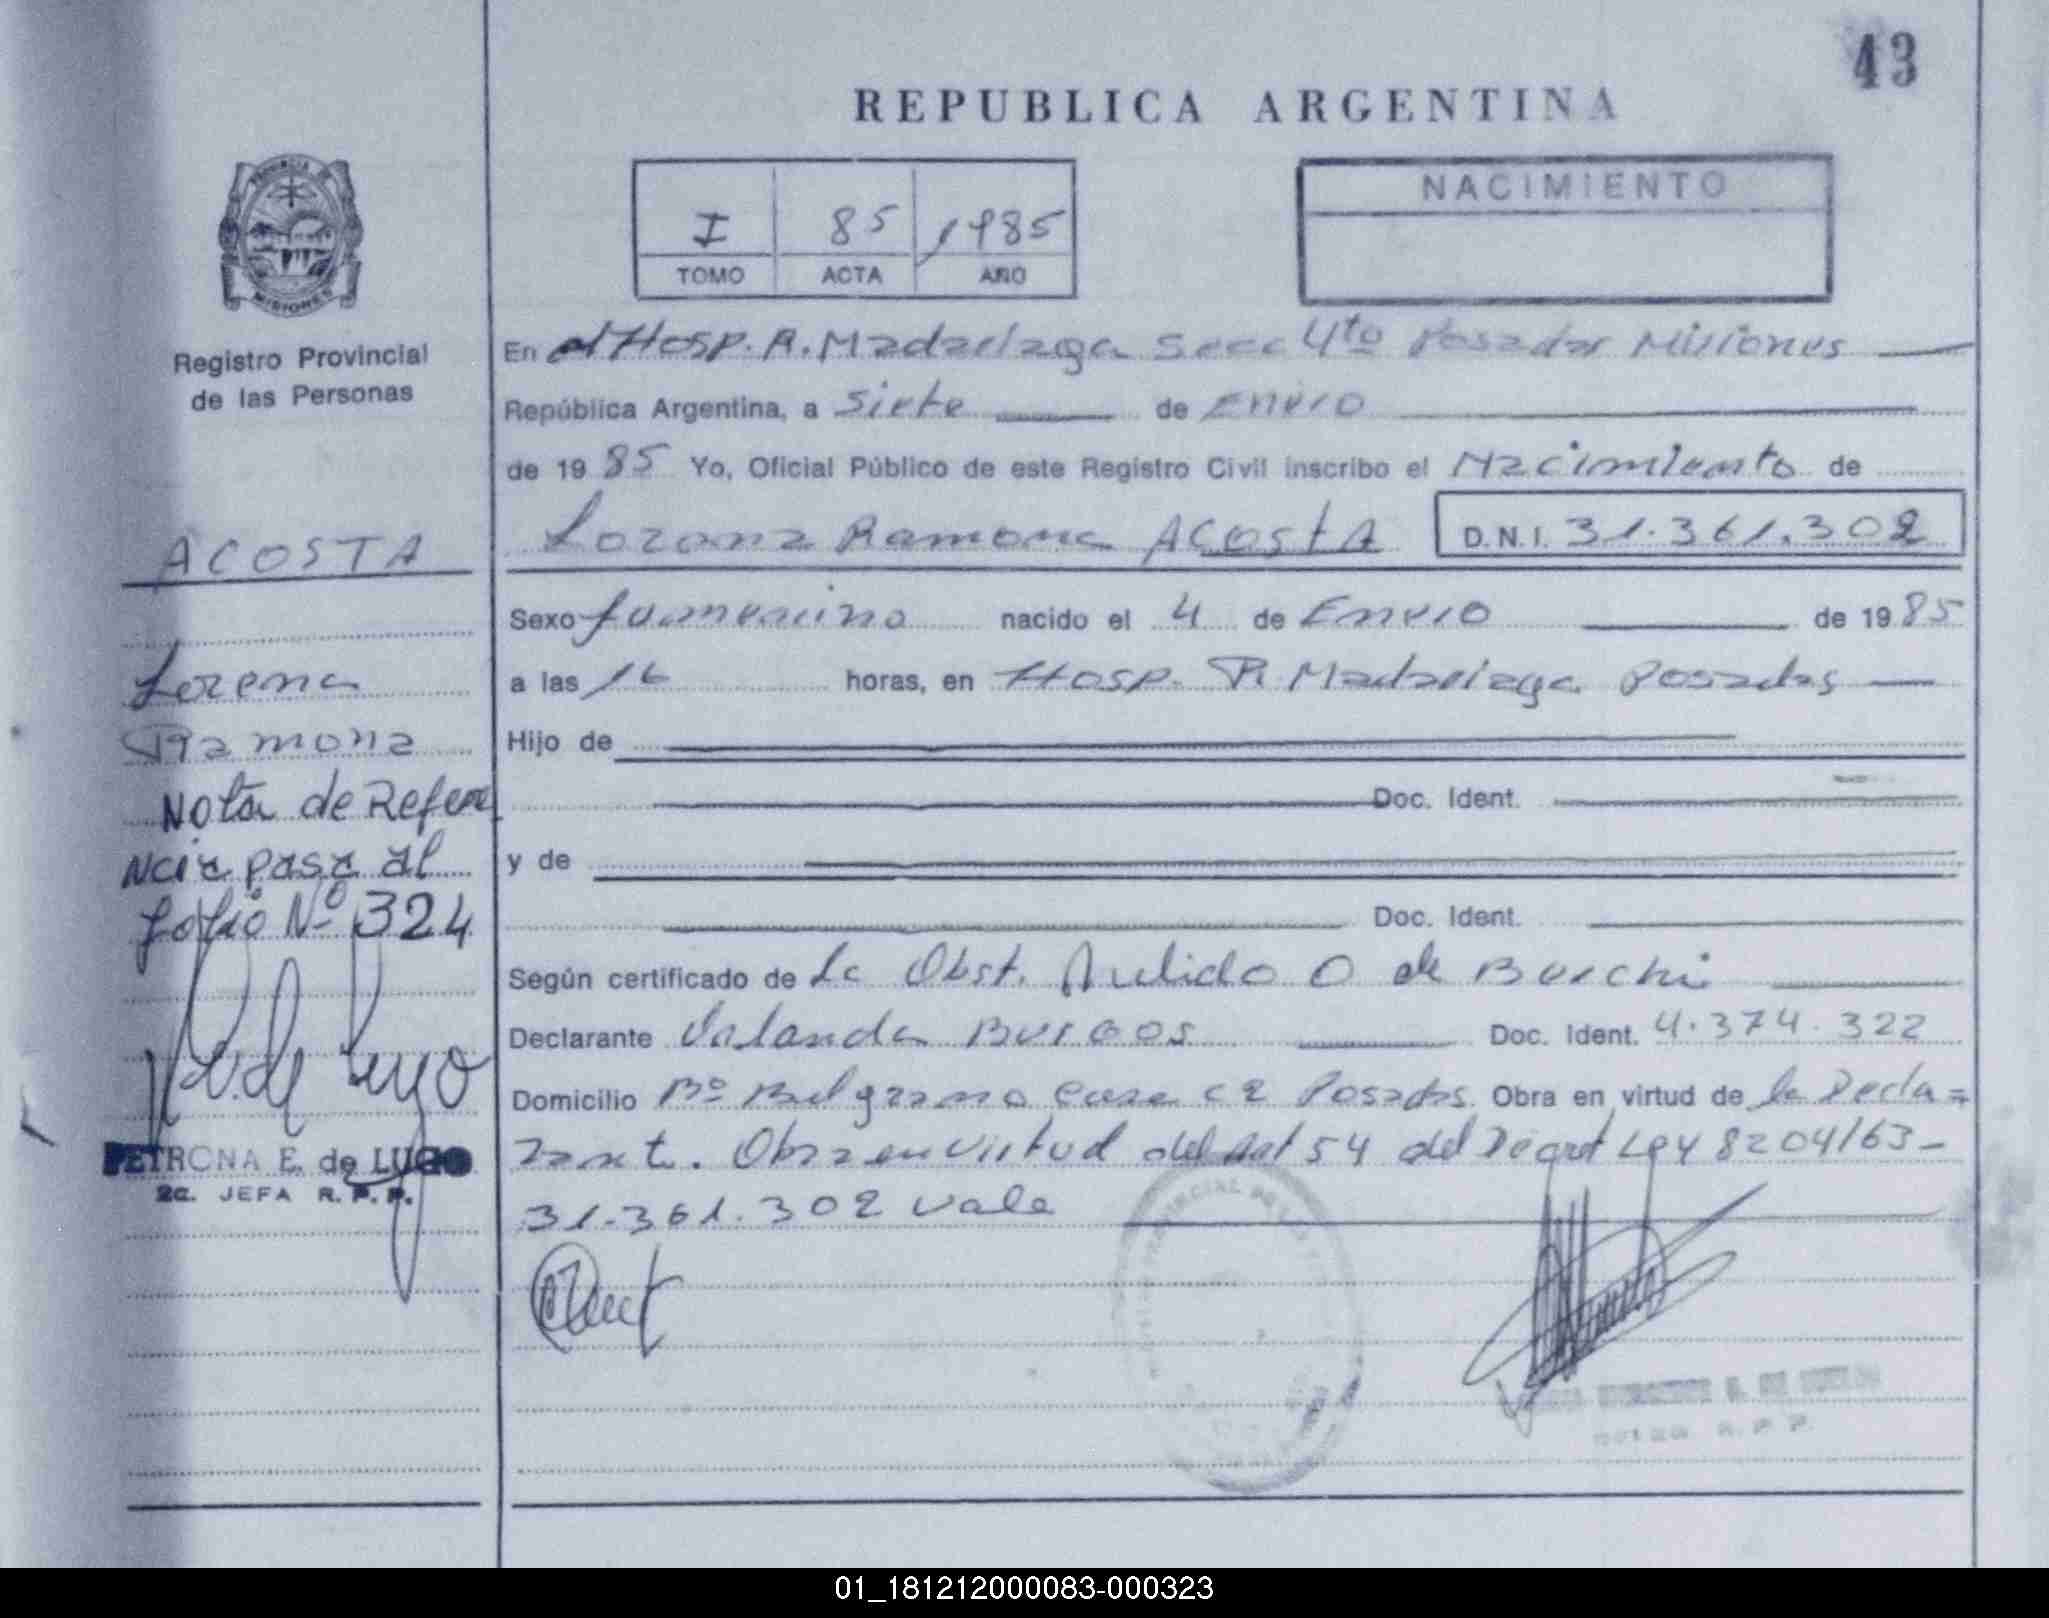 43
REPUBLICA ARGENTINA
NACIMIENTO
I 85 1985
TOMO ACTA AÑO
PROVINCIA DE
MISIONES
Registro Provincial
de las Personas
ACOSTA
Lorena
Ramona
Nota de Refere
ncia pasa al
folio Nº 324
PETRONA E. de LUGO
2a. JEFA R.P.P.
En el Hosp. R. Madariaga Secc 4to Posadas Misiones
República Argentina, a Siete de Enero
de 1985 Yo, Oficial Público de este Registro Civil inscribo el Nacimiento de
Lorena Ramona ACOSTA D.N.I. 31.361.302
Sexo femenino nacido el 4 de Enero de 1985
a las 16 horas, en Hosp. R. Madariaga Posadas
Hijo de
Doc. Ident.
y de
Doc. Ident.
Según certificado de La Obst. O de
Declarante Burgos Doc. Ident. 4.374.322
Domicilio Bº Belgrano Casa Posadas. Obra en virtud de la Decla=
rant. Obra en virtud del art 54 del Decret Ley 8204/63-
31.361.302 vale
R.P.P.
01_181212000083-000323